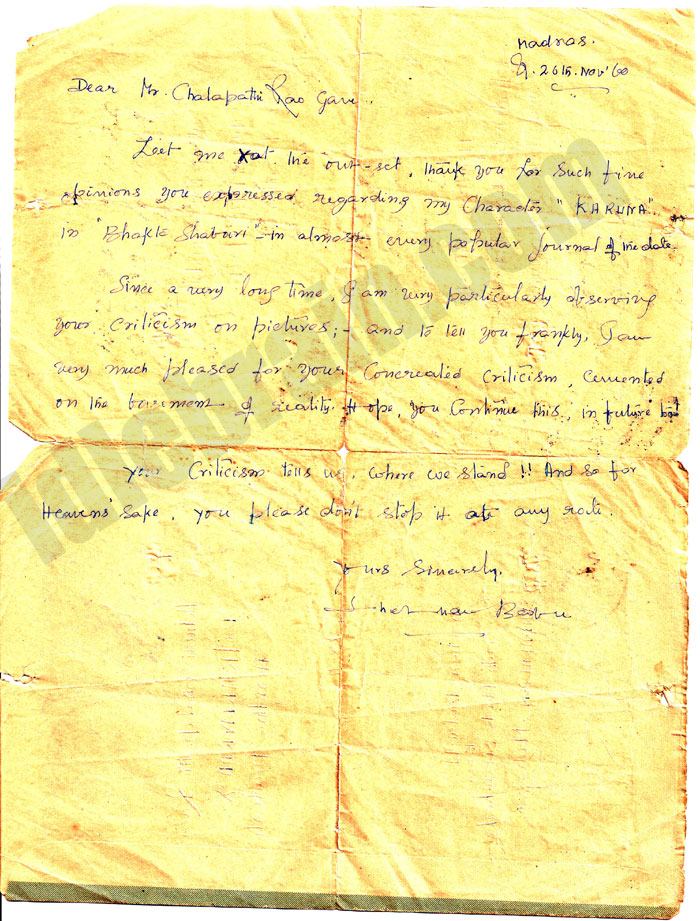 Madras.
26th. Nov' 60
Dear Mr. Chalapathi Rao Garu.
Let me at the out-set, thank you for such fine
opinions you expressed regarding my Character "KARUNA"
in "Bhakta Shabari" - in almost every popular Journal of the date.
Since a very long time, I am very particularly observing
your criticism on pictures; - and to tell you frankly, I am
very much pleased for your Concreated Criticism, cemented
on the basement of reality. Hope, you Continue this, in future too
your Criticism tells us, where we stand !! And so for
Heavens' Sake, you please don't stop it at any rate.
Yours Sincerely,
Babu